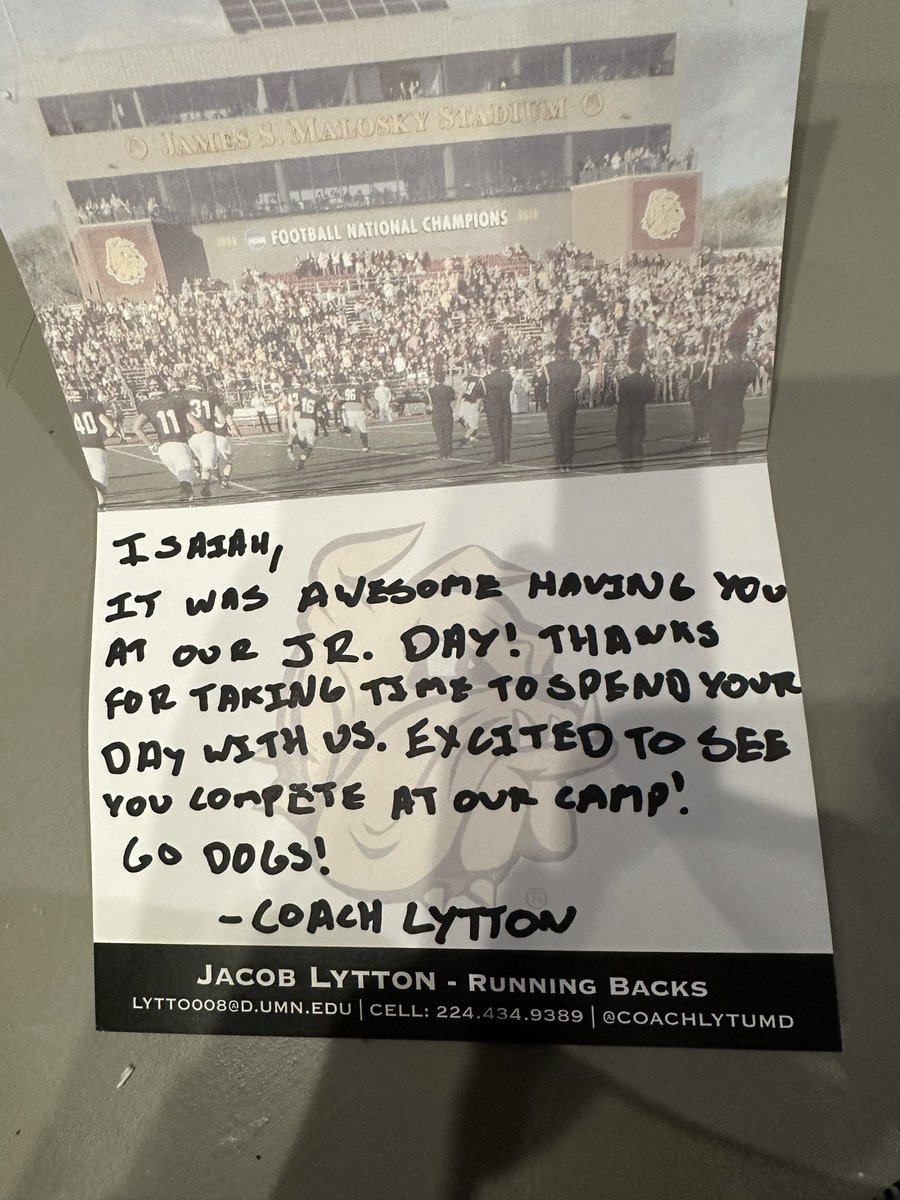 JAMES S. MALOSKY STADIUM
FOOTBALL NATIONAL CHAMPIONS
40 11 31 16 96
ISAIAH,
IT WAS AWESOME HAVING YOU
AT OUR JR. DAY! THANKS
FOR TAKING TIME TO SPEND YOUR
DAY WITH US. EXCITED TO SEE
YOU COMPETE AT OUR CAMP!
GO DOGS!
-COACH LYTTON
JACOB LYTTON - RUNNING BACKS
LYTTO008@D.UMN.EDU | CELL: 224.434.9389 | @COACHLYTUMD